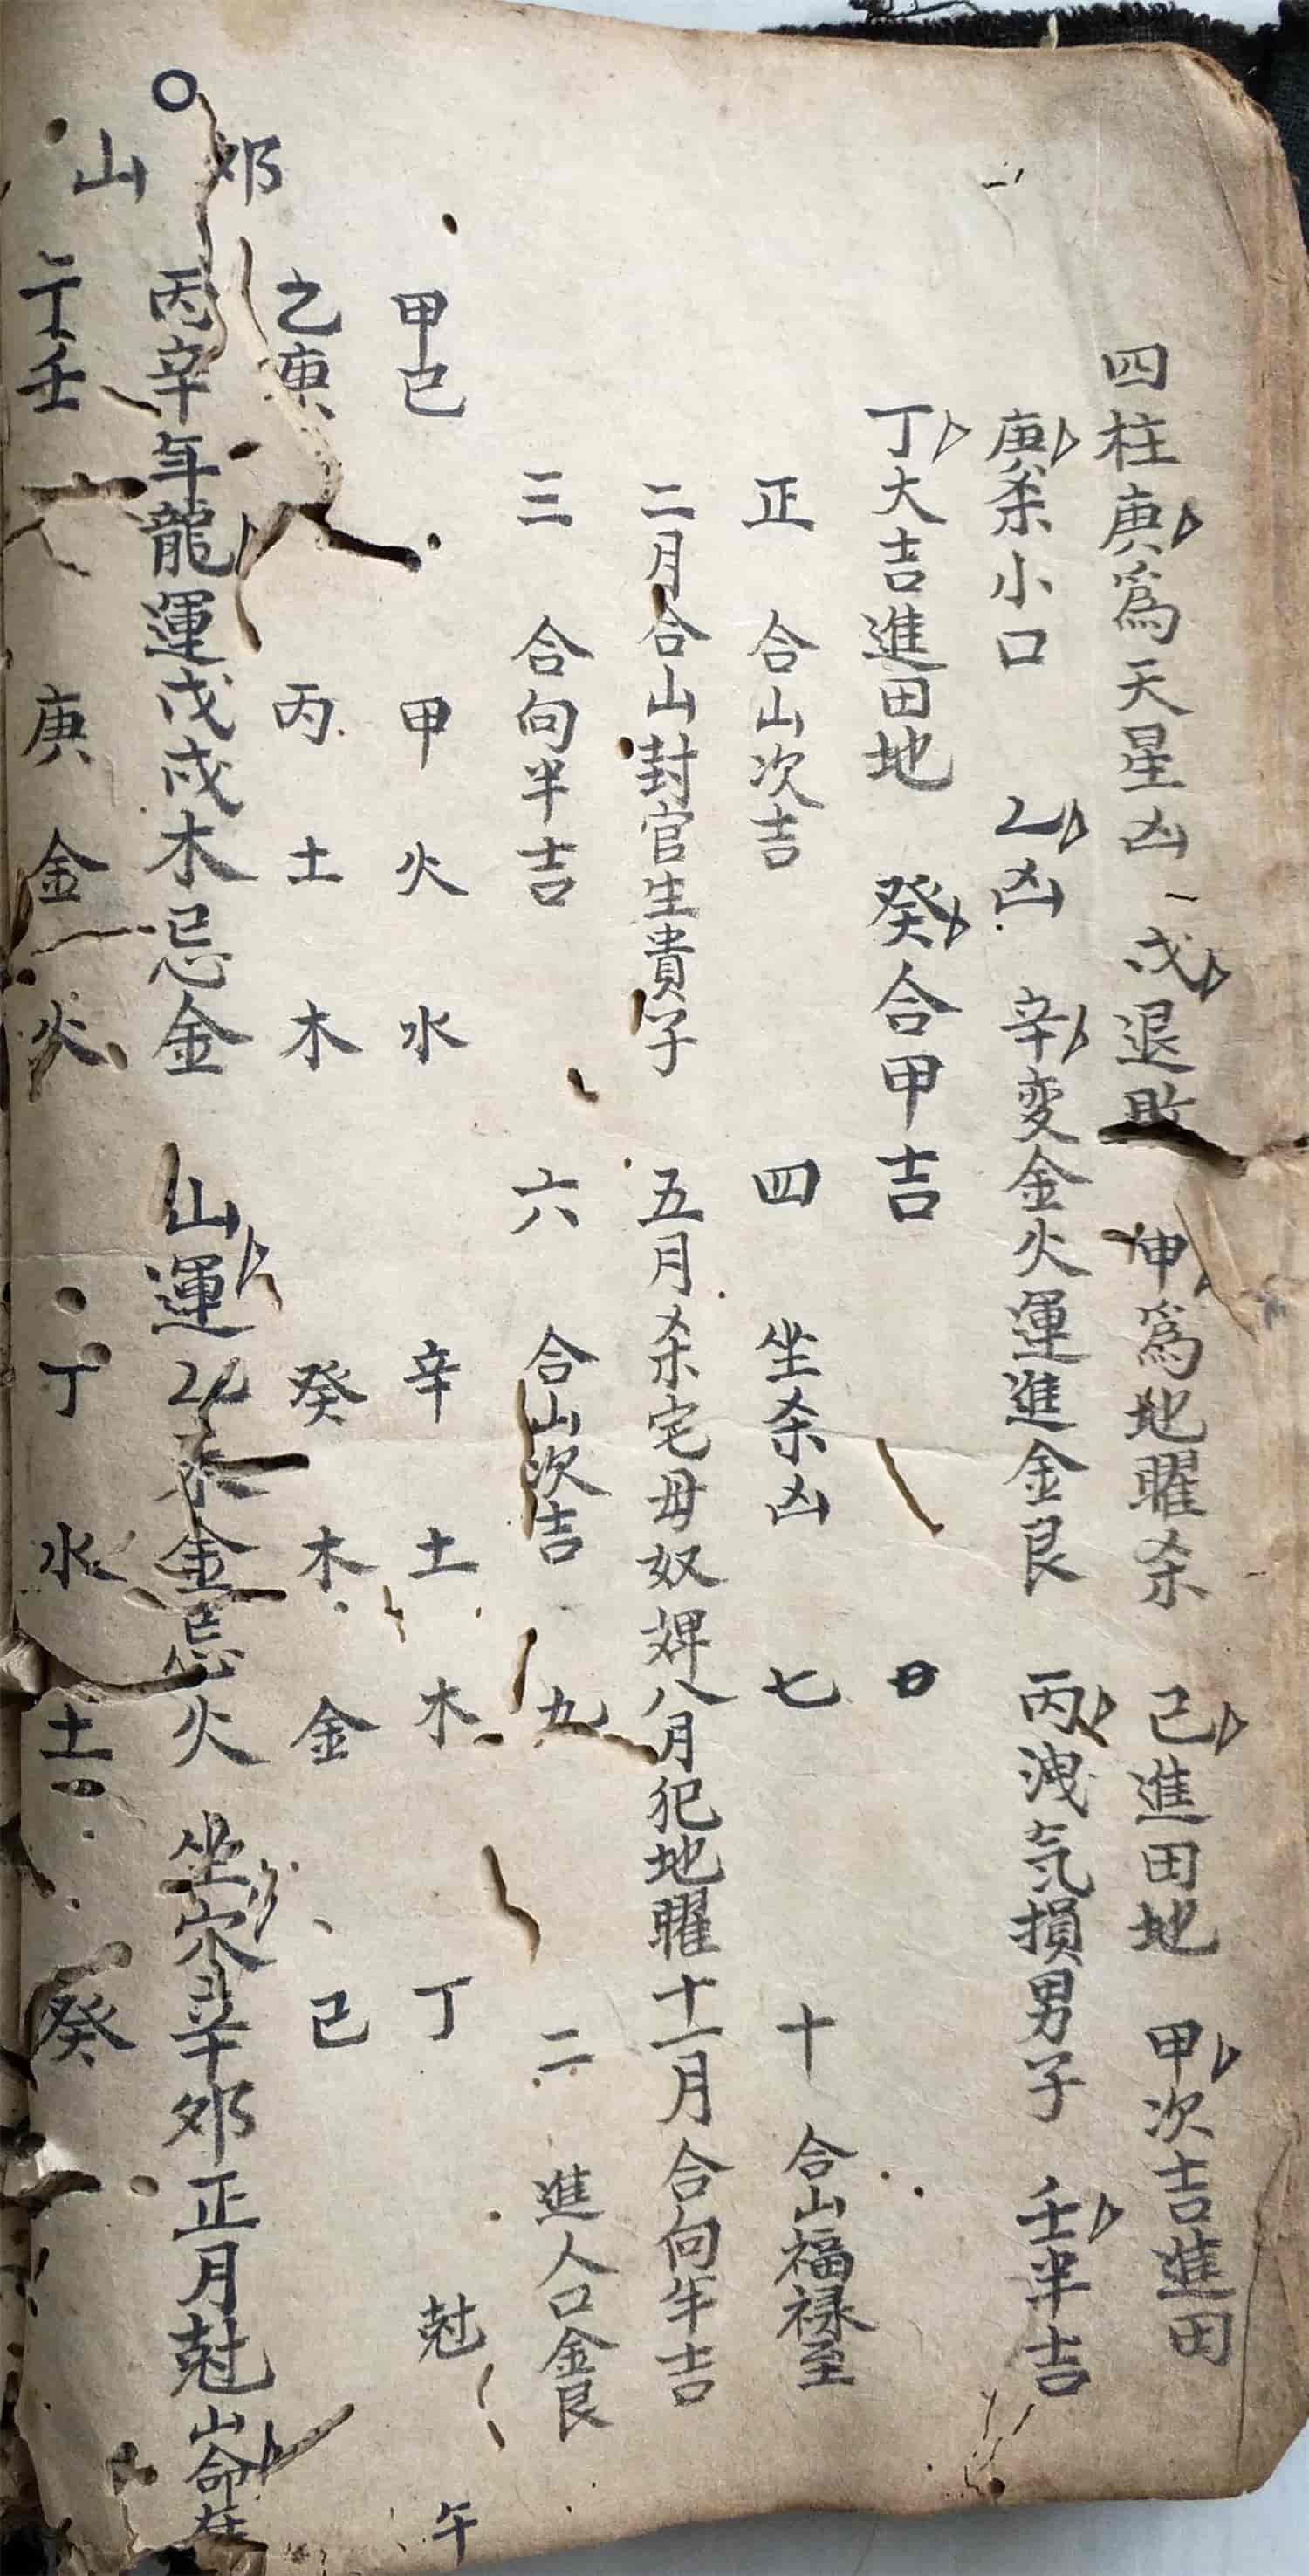 四柱庚為天星凶 戊退敗 申為地曜杀 己進田地 甲次吉進田
庚杀小口 乙凶 辛变金火運進金艮 丙洩気損男子 壬半吉
丁大吉進田地 癸合甲吉
正 合山次吉 四 坐杀凶 七 十 合山福禄至
二月合山封官生貴子 五月杀宅母奴婢八月犯地曜十一月合向半吉
三 合向半吉 六 合山次吉 九 二 進人口金艮
甲己 甲火水 辛土木 丁 尅 午
乙庚 丙土木 癸木金 己
夘山 丙辛年龍運戊戌木忌金 山運 金忌火 坐穴辛夘正月尅山命
丁壬 庚金火 丁水土 癸